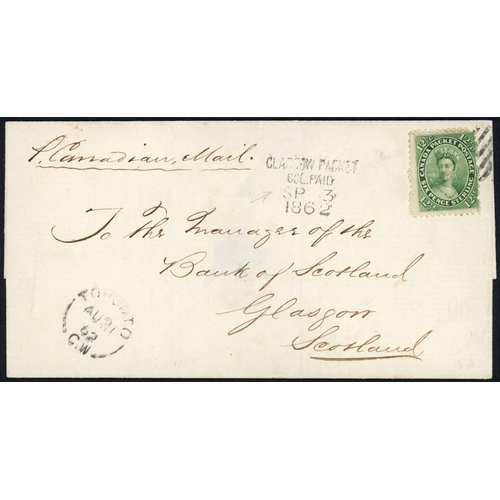 P. Canadian Mail.
GLASGOW PACKET
COL. PAID
SP 3
1862
12½c
CANADA PACKET POSTAGE
SIX PENCE STERLING
To The Manager of the
Bank of Scotland
Glasgow
Scotland
TORONTO
AU 21
62
C.W